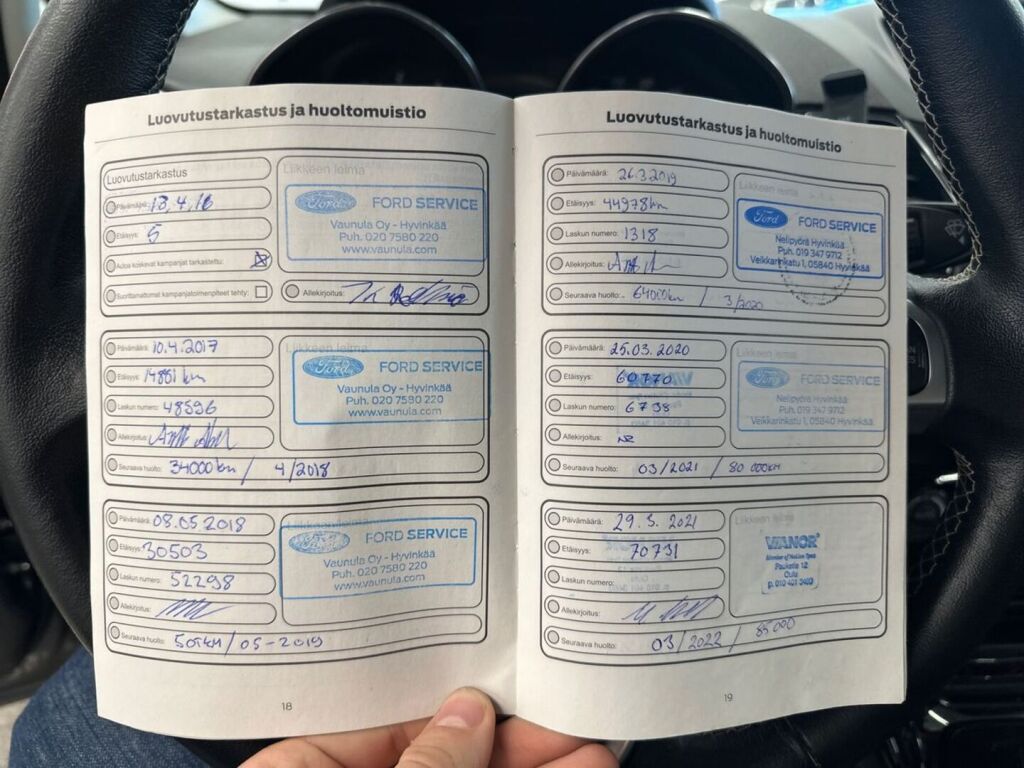 Luovutustarkastus ja huoltomuistio
Luovutustarkastus
Päivämäärä: 13.4.16
Etäisyys: 5
Autoa koskevat kampanjat tarkastettu:
Suorittamattomat kampanjatoimenpiteet tehty:
Liikkeen leima
Ford FORD SERVICE
Vaunula Oy - Hyvinkää
Puh. 020 7580 220
www.vaunula.com
Allekirjoitus:
Päivämäärä: 10.4.2017
Etäisyys: 14851 km
Laskun numero: 48596
Allekirjoitus:
Seuraava huolto: 34000km / 4/2018
Liikkeen leima
Ford FORD SERVICE
Vaunula Oy - Hyvinkää
Puh. 020 7580 220
www.vaunula.com
Päivämäärä: 08.05.2018
Etäisyys: 30503
Laskun numero: 52298
Allekirjoitus:
Seuraava huolto: 50TKM / 05-2019
Liikkeen leima
Ford FORD SERVICE
Vaunula Oy - Hyvinkää
Puh. 020 7580 220
www.vaunula.com
18
Luovutustarkastus ja huoltomuistio
Päivämäärä: 26.3.2019
Etäisyys: 44978km
Laskun numero: 1318
Allekirjoitus:
Seuraava huolto: 64000km / 3/2020
Liikkeen leima
Ford FORD SERVICE
Nelipyörä Hyvinkää
Puh. 019 347 9712
Veikkarinkatu 1, 05840 Hyvinkää
Päivämäärä: 25.03.2020
Etäisyys: 60770
Laskun numero: 6738
Allekirjoitus:
Seuraava huolto: 03/2021 / 80 000km
Liikkeen leima
Ford FORD SERVICE
Nelipyörä Hyvinkää
Puh. 019 347 9712
Veikkarinkatu 1, 05840 Hyvinkää
Päivämäärä: 29.3.2021
Etäisyys: 70731
Laskun numero:
Allekirjoitus:
Seuraava huolto: 03/2022 / 85 000
Liikkeen leima
VIANOR
Member of Nokian Tyres
Paukatie 12
Oulu
p. 010 401 3403
19